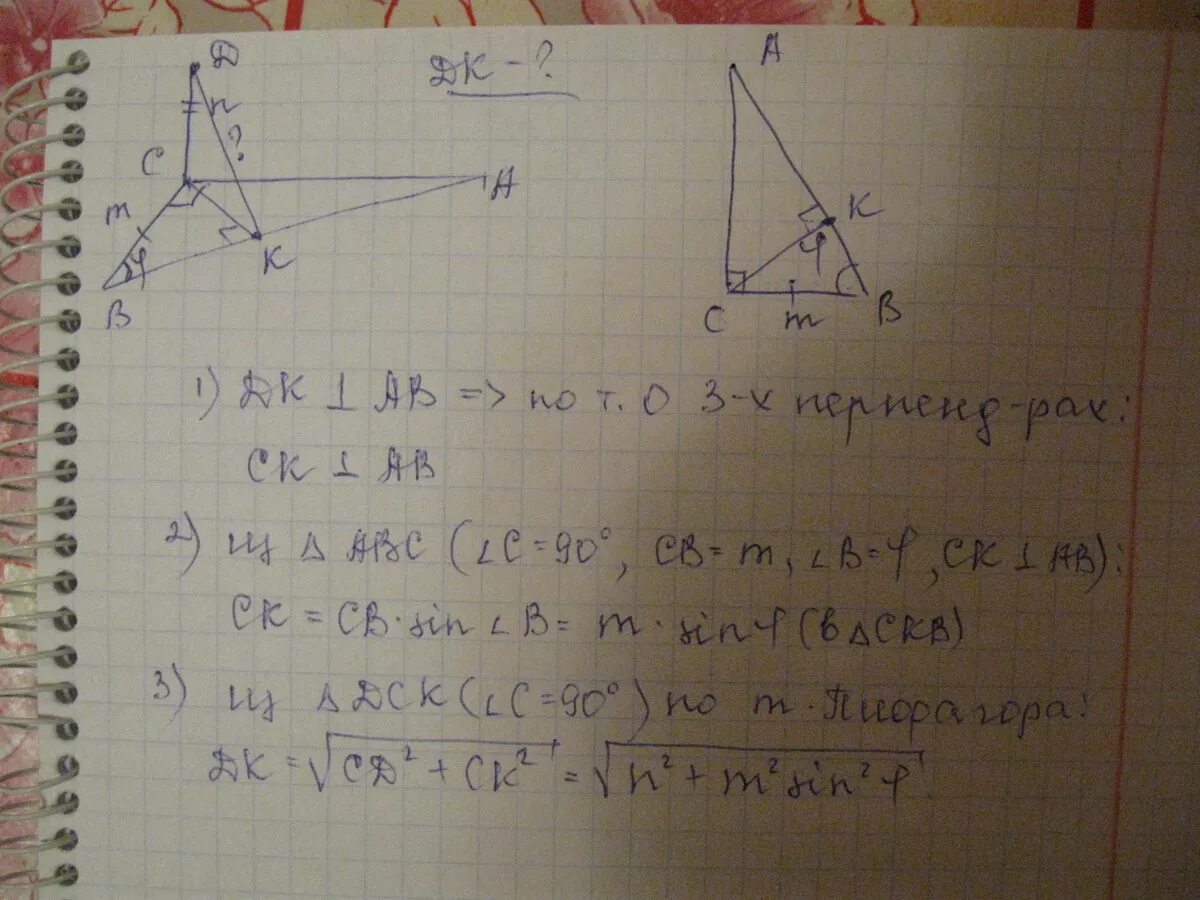 D
n
?
C
m
φ
B
K
A
DK - ?
A
K
φ
C
m
B
1) DK ⊥ AB => по т. о 3-х перпенд-рах:
CK ⊥ AB
2) из △ ABC (∠C = 90°, CB = m, ∠B = φ, CK ⊥ AB):
CK = CB · sin ∠B = m · sin φ (в △CKB)
3) из △DCK (∠C = 90°) по т. Пифагора:
DK = √(CD² + CK²) = √(n² + m² sin² φ).